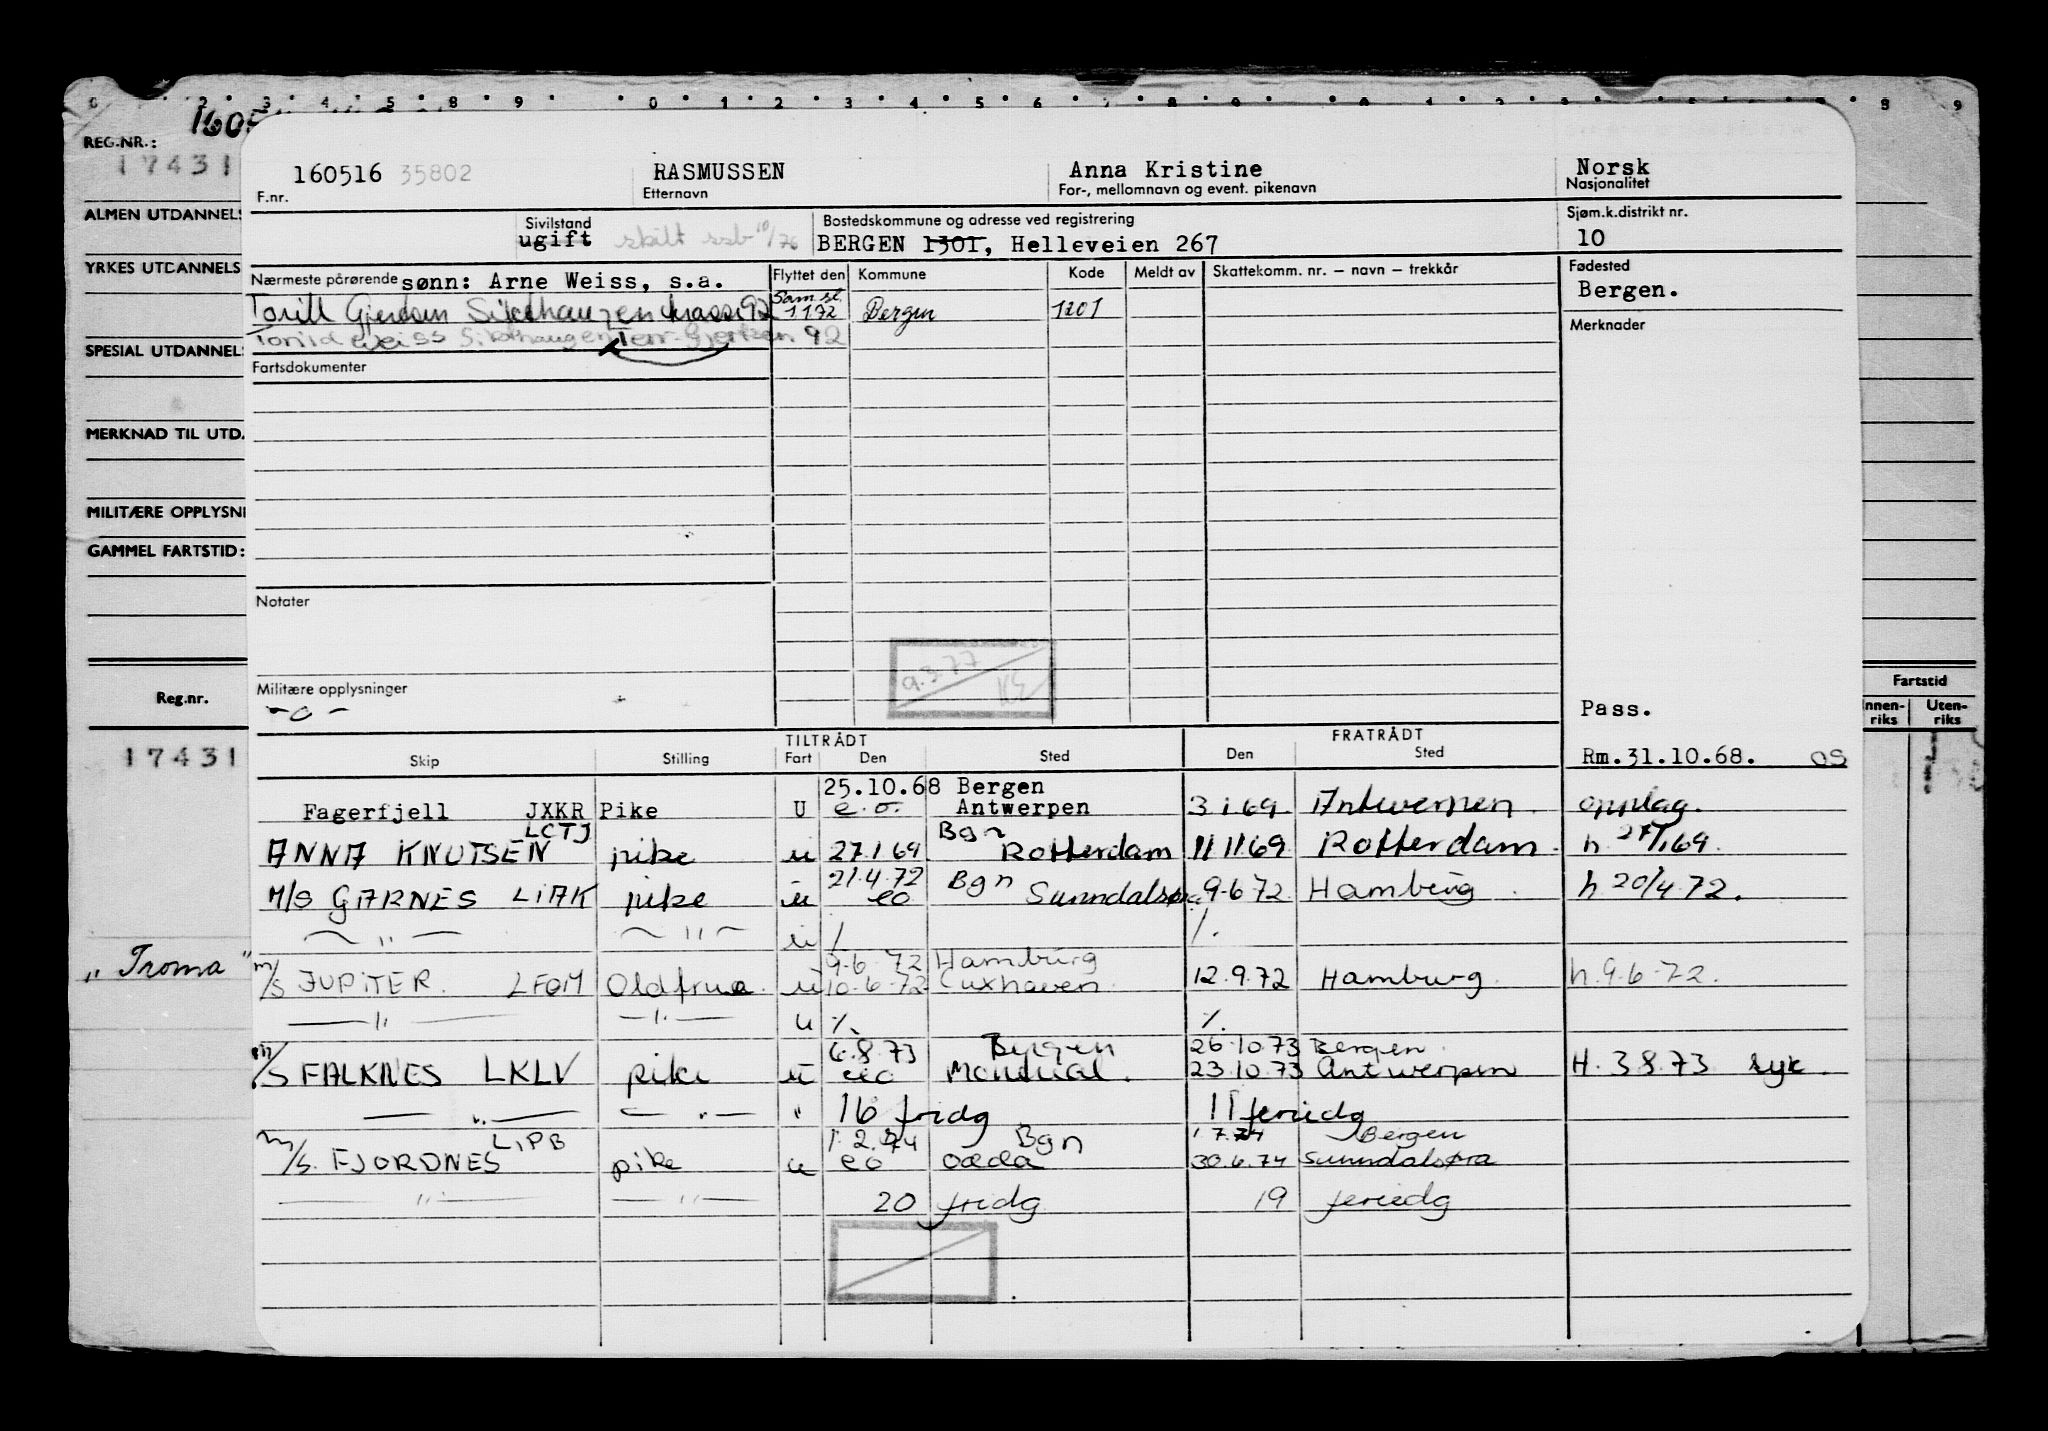 REG.NR.:
17431
160516 35802
F.nr.
RASMUSSEN
Etternavn
Anna Kristine
For-, mellomnavn og event. pikenavn
Norsk
Nasjonalitet
ALMEN UTDANNELS
Sivilstand
ugift skilt ssb 10/76
Bostedskommune og adresse ved registrering
BERGEN 1301, Helleveien 267
Sjøm.k.distrikt nr.
10
YRKES UTDANNELS
Nærmeste pårørende sønn: Arne Weiss, s.a.
Flyttet den Kommune Kode Meldt av Skattekomm. nr. – navn – trekkår
Fødested
Bergen.
Sam.sl.
1 1 72 Bergen 1201
Merknader
SPESIAL UTDANNELS
Fartsdokumenter
MERKNAD TIL UTD.
MILITÆRE OPPLYSNI
GAMMEL FARTSTID:
Notater
9.3.77
Militære opplysninger
- o -
Pass.
Reg.nr.
Fartstid
Innen-riks Uten-riks
TILTRÅDT FRATRÅDT
Skip Stilling Fart Den Sted Den Sted
Rm.31.10.68. OS
17431
25.10.68 Bergen
Fagerfjell JXKR Pike U e.o. Antwerpen 3 1 69 Antwerpen. opplag.
LCTJ Bgn
ANNA KNUTSEN pike u 27.1 69 Rotterdam 11 11 69 Rotterdam. h. 27/1 69.
21.4.72 Bgn
M/S GARNES LIAK pike u eo Sunndalsøra 9.6 72 Hamburg. h. 20/4.72.
— " — — " — u / /.
„Troma"
9.6.72 Hamburg
m/s JUPITER. LFQM Oldfrue. u 10.6.72 Cuxhaven. 12.9.72 Hamburg. h. 9.6.72.
— " — — " — u %. %.
6.8.73 Bergen 26.10.73 Bergen.
m/s FALKNES LKLV pike u eo Montreal. 23.10.73 Antwerpen H. 3 8 73 syk.
— " — — " — " 16 fridg 11 feriedg
LIPB 1.2.74 Bgn 1 7.74 Bergen
m/s. FJORDNES pike u eo Odda 30.6.74 Sunndalsøra
— " — — " — 20 fridg 19 feriedg